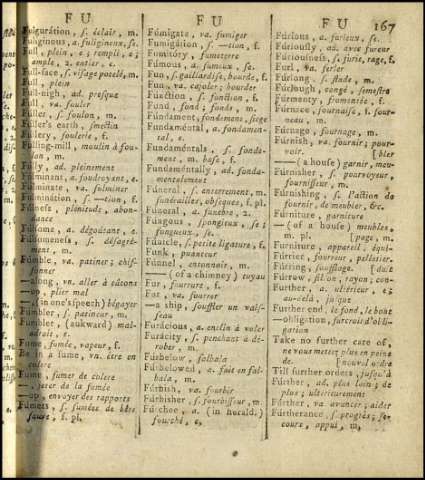 FU FU FU 167
Fulguration, s. éclair, m.
Fuliginous, a. fuligineux, se.
Full, plein, e; rempli, e;
ample, 2. entier, e.
Full-face, s. visage potelé, m.
Full, plein
Full-nigh, ad. presque
Full, va. fouler
Fuller, s. foulon, m.
Fuller's earth, smectin
Fullery, foulerie, f.
Fulling-mill, moulin à fou-
lon, m.
Fully, ad. pleinement
Fulminant, a. foudroyant, e.
Fulminate, va. fulminer
Fulmination, s. —tion, f.
Fulness, plénitude, abon-
dance
Fulsome, a. dégoûtant, e.
Fulsomeness, s. désagré-
ment, m.
Fumble, va. patiner; chif-
fonner
—along, vn. aller à tâtons
—up, plier mal
—(in one's speech) bégayer
Fumbler, s. patineur, m.
Fumbler, (aukward) mal-
adroit, e.
Fume, fumée, vapeur, f.
Be in a fume, vn. être en
colere
Fume, fumer de colere
—, jetter de la fumée
—up, envoyer des rapports
Fumets, s. fumées de bête
fauve, f. pl.
Fúmigate, va. fumiger
Fumigátion, s. —tion, f.
Fumitóry, fumeterre
Fúmous, a. fumeux, se.
Fun, s. gaillardise, bourde, f.
Fun, va. cajoler; bourder
Fúnction, s. fonction, f.
Fund, fond; fonds, m.
Fúndament, fondement, siege
Fundaméntal, a. fondamen-
tal, e.
Fundaméntals, s. fonde-
ment, m. base, f.
Fundaméntally, ad. fonda-
mentalement
Fúneral, s. enterrement, m.
funérailles, obseques, f. pl.
Fúneral, a. funebre, 2.
Fúngous, spongieux, se;
fungueux, se.
Fúnicle, s. petite ligature, f.
Funk, puanteur
Fúnnel, entonnoir, m.
—(of a chimney) tuyau
Fur, fourrure, f.
Fur, va. fourrer
—a ship, souffler un vais-
seau
Furácious, a. enclin à voler
Furácity, s. penchant à dé-
rober, m.
Fúrbelow, falbala
Fúrbelowed, a. fait en fal-
bala, m.
Fúrbish, va. fourbir
Fúrbisher, s. fourbisseur, m.
Fúrchee, a. (in herald.)
fourché, e,
Fúrious, a. furieux, se.
Fúriously, ad. avec fureur
Fúriousness, s. furie, rage, f.
Furl, va. ferler
Fúrlong, s. stade, m.
Fúrlough, congé, semestre
Fúrmenty, fromentée, f.
Fúrnace, fournaise, f. four-
neau, m.
Fúrnage, fournage, m.
Fúrnish, va. fournir, pour-
[bler
—(a house) garnir, meu-
Fúrnisher, s. pourvoyeur,
fournisseur, m.
Fúrnishing, s. l'action de
fournir, de meubler, &c.
Fúrniture, garniture
—(of a house) meubles,
m. pl. [page, m.
Fúrniture, appareil, équi-
Fúrrier, foureur, pelletier.
Fúrring, soufflage. [duit
Fúrrow, sillon, rayon; con-
Fúrther, a. ultérieur, e;
au-delà, jusque
Fúrther end, le fond, le bout
—obligation, surcroît d'obli-
gation
Take no further care of,
ne vous mettez plus en peine
de. [nouvel ordre
Till further orders, jusqu'à
Fúrther, ad. plus loin; de
plus; ulterieurement
Fúrther, va. avancer; aider
Fúrtherance, s. progrès; se-
cours, appui, m.